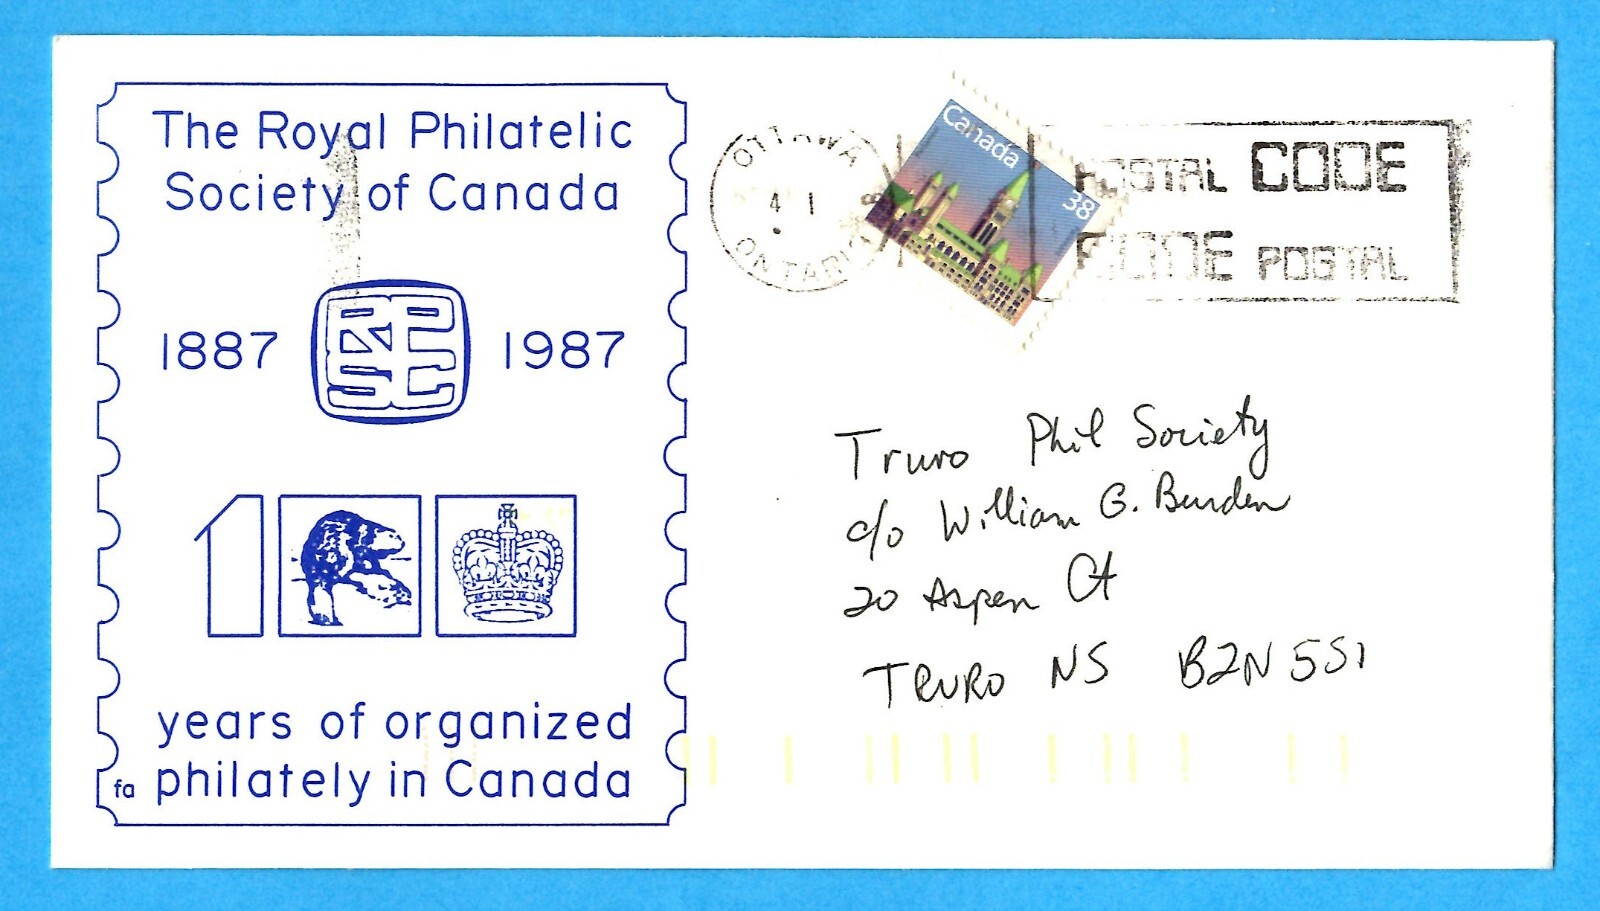 The Royal Philatelic
Society of Canada
1887
1987
100
years of organized
philately in Canada
fa
OTTAWA
4 1
ONTARIO
Canada
38
POSTAL CODE
CODE POSTAL
Truro Phil Society
c/o William G. Burden
20 Aspen Ct
TRURO NS B2N 5S1